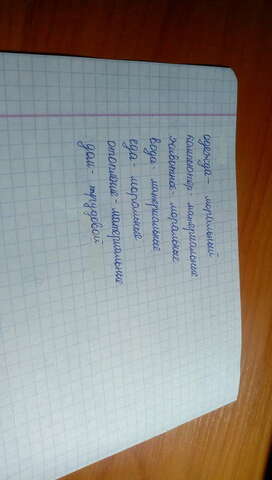 одежда - моральный
компьютер: материальные
животна: моральные
вода материальные
еда - моральные
отопление - материальные
дом - трудовой